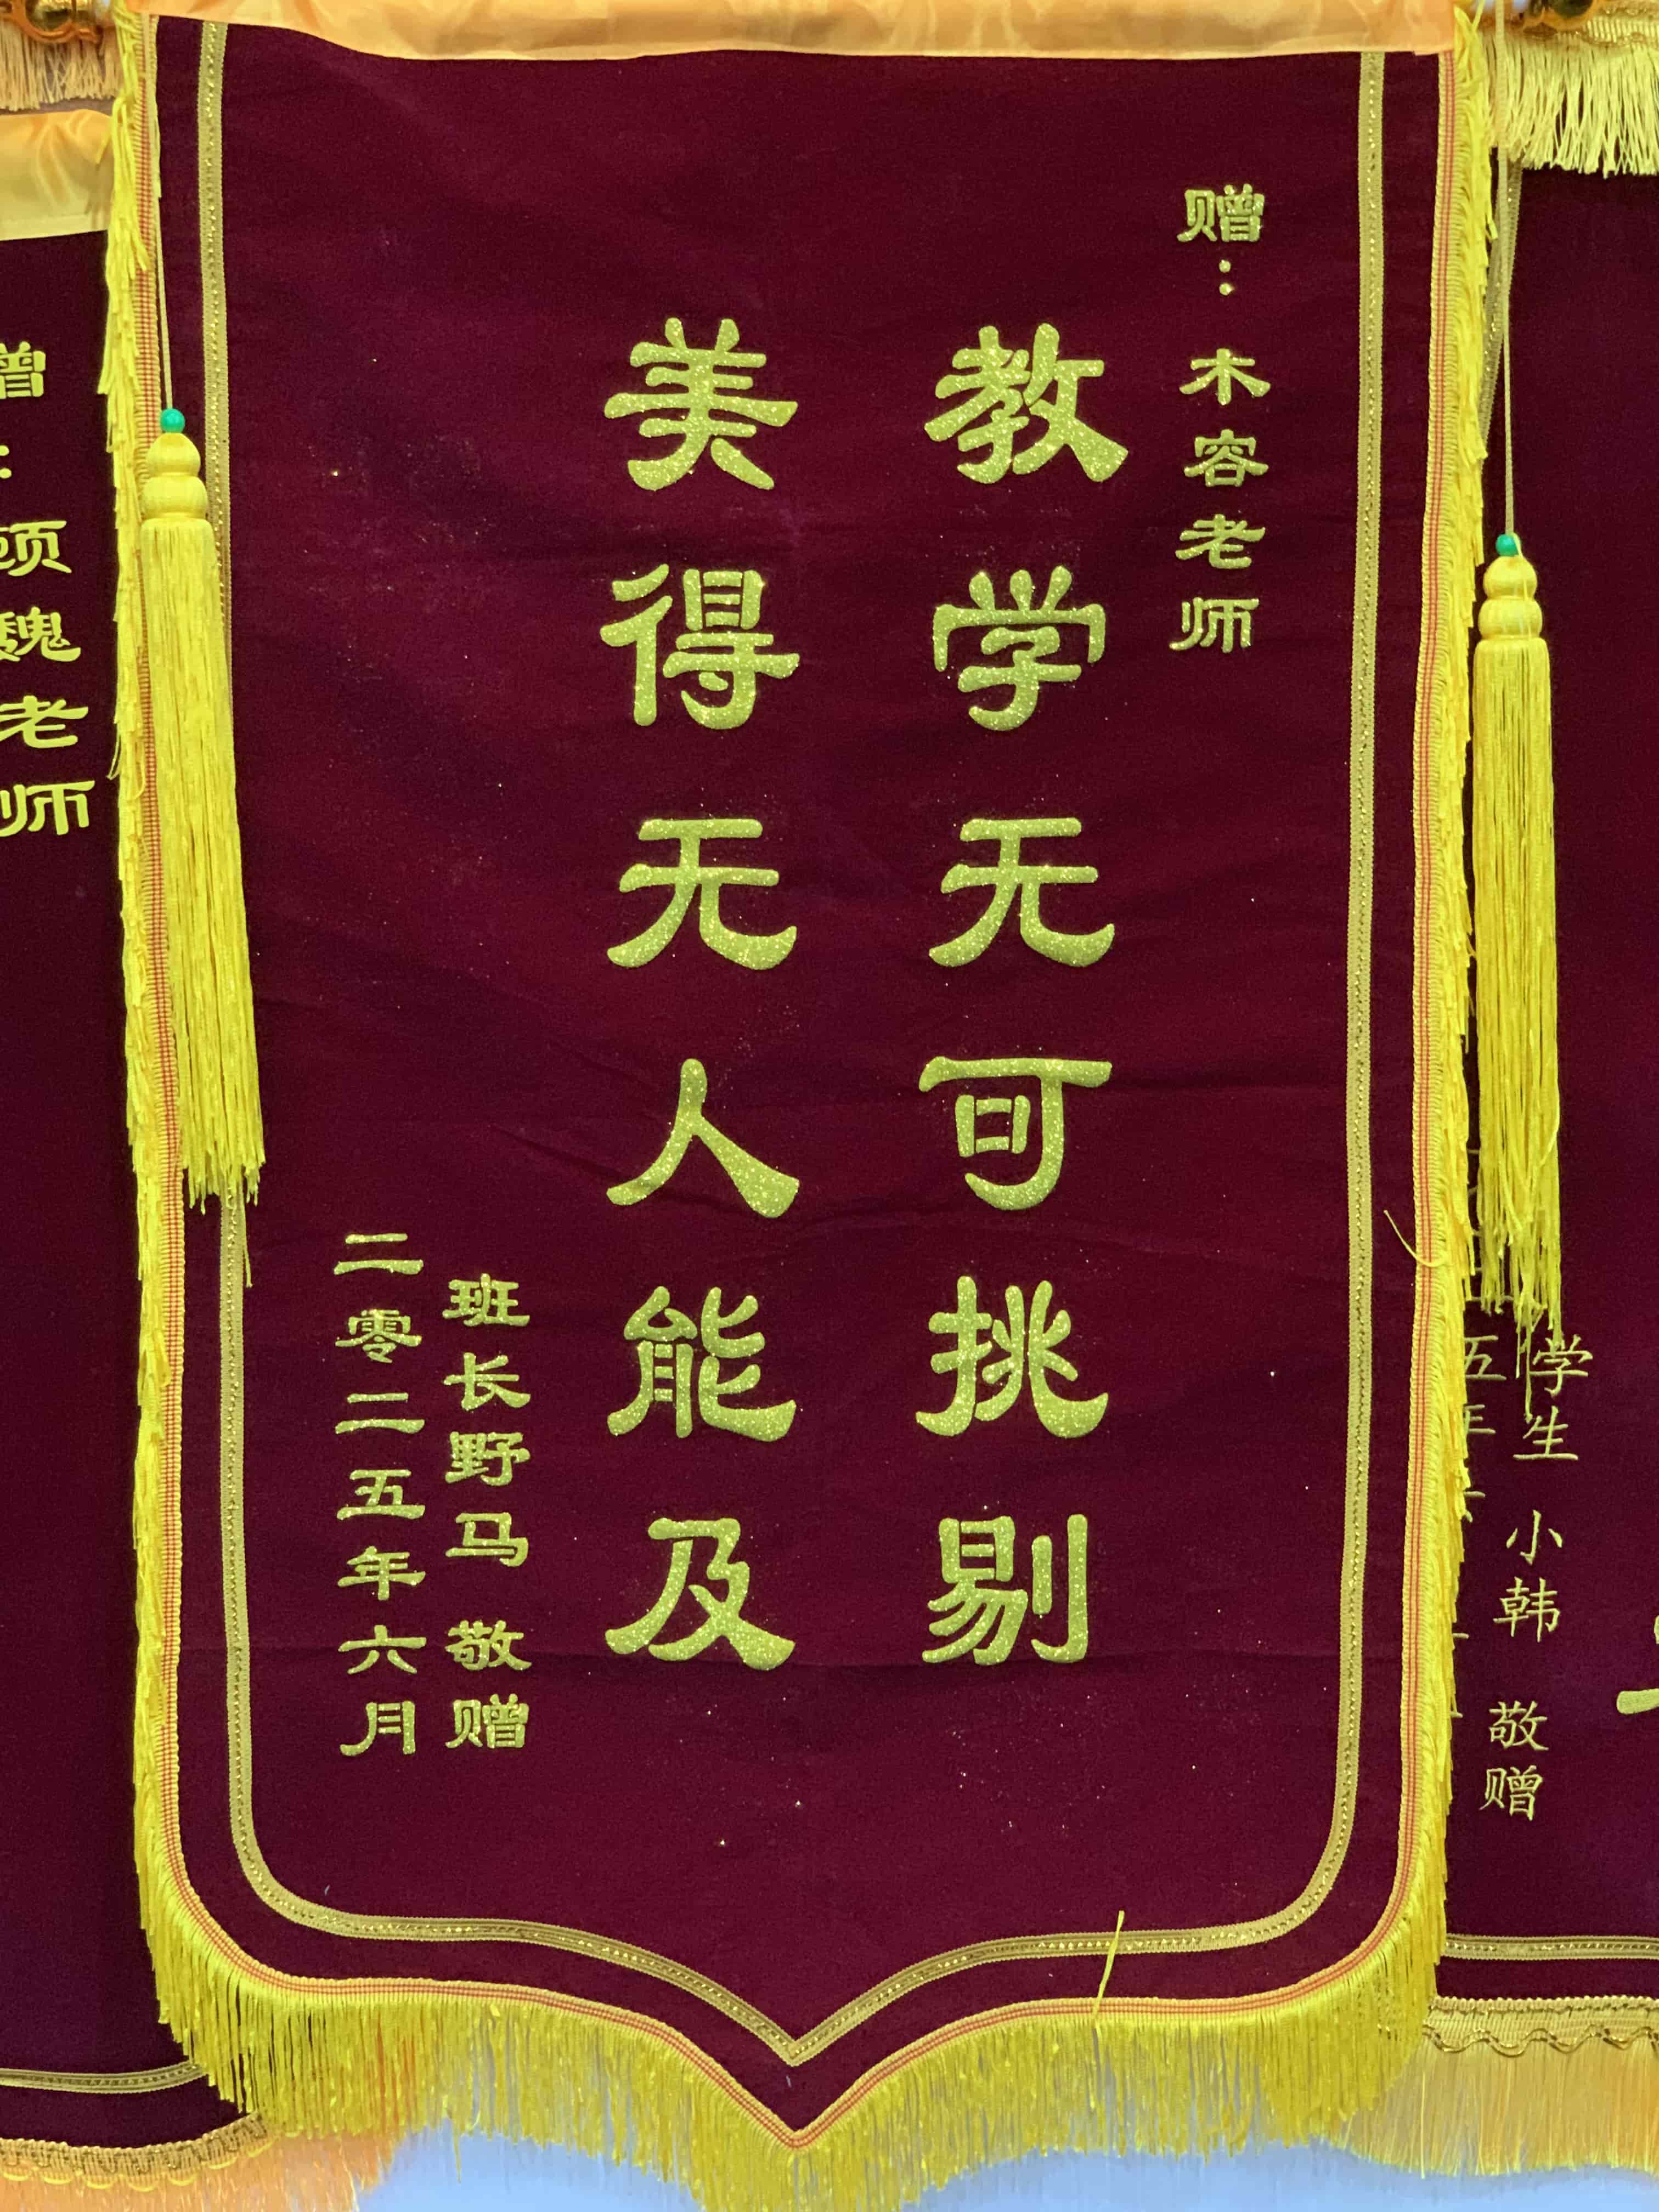 赠：木容老师
教学无可挑剔
美得无人能及
班长野马 敬赠
二零二五年六月
顾魏老师
学生 小韩 敬赠